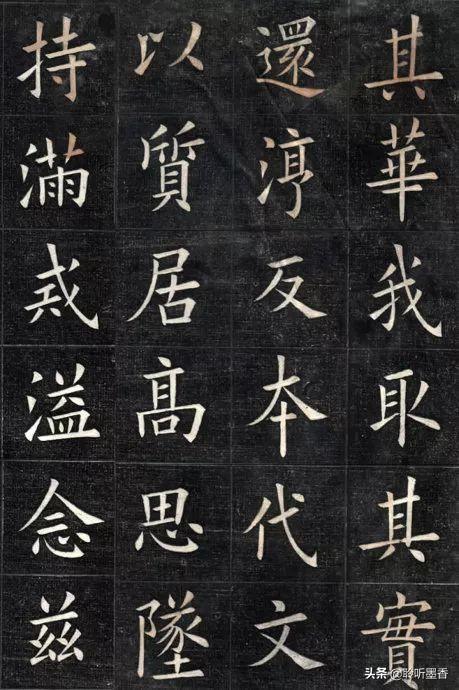 其華我取其實
還淳反本代文
以質居高思墜
持滿戒溢念茲
头条 @聆听墨香